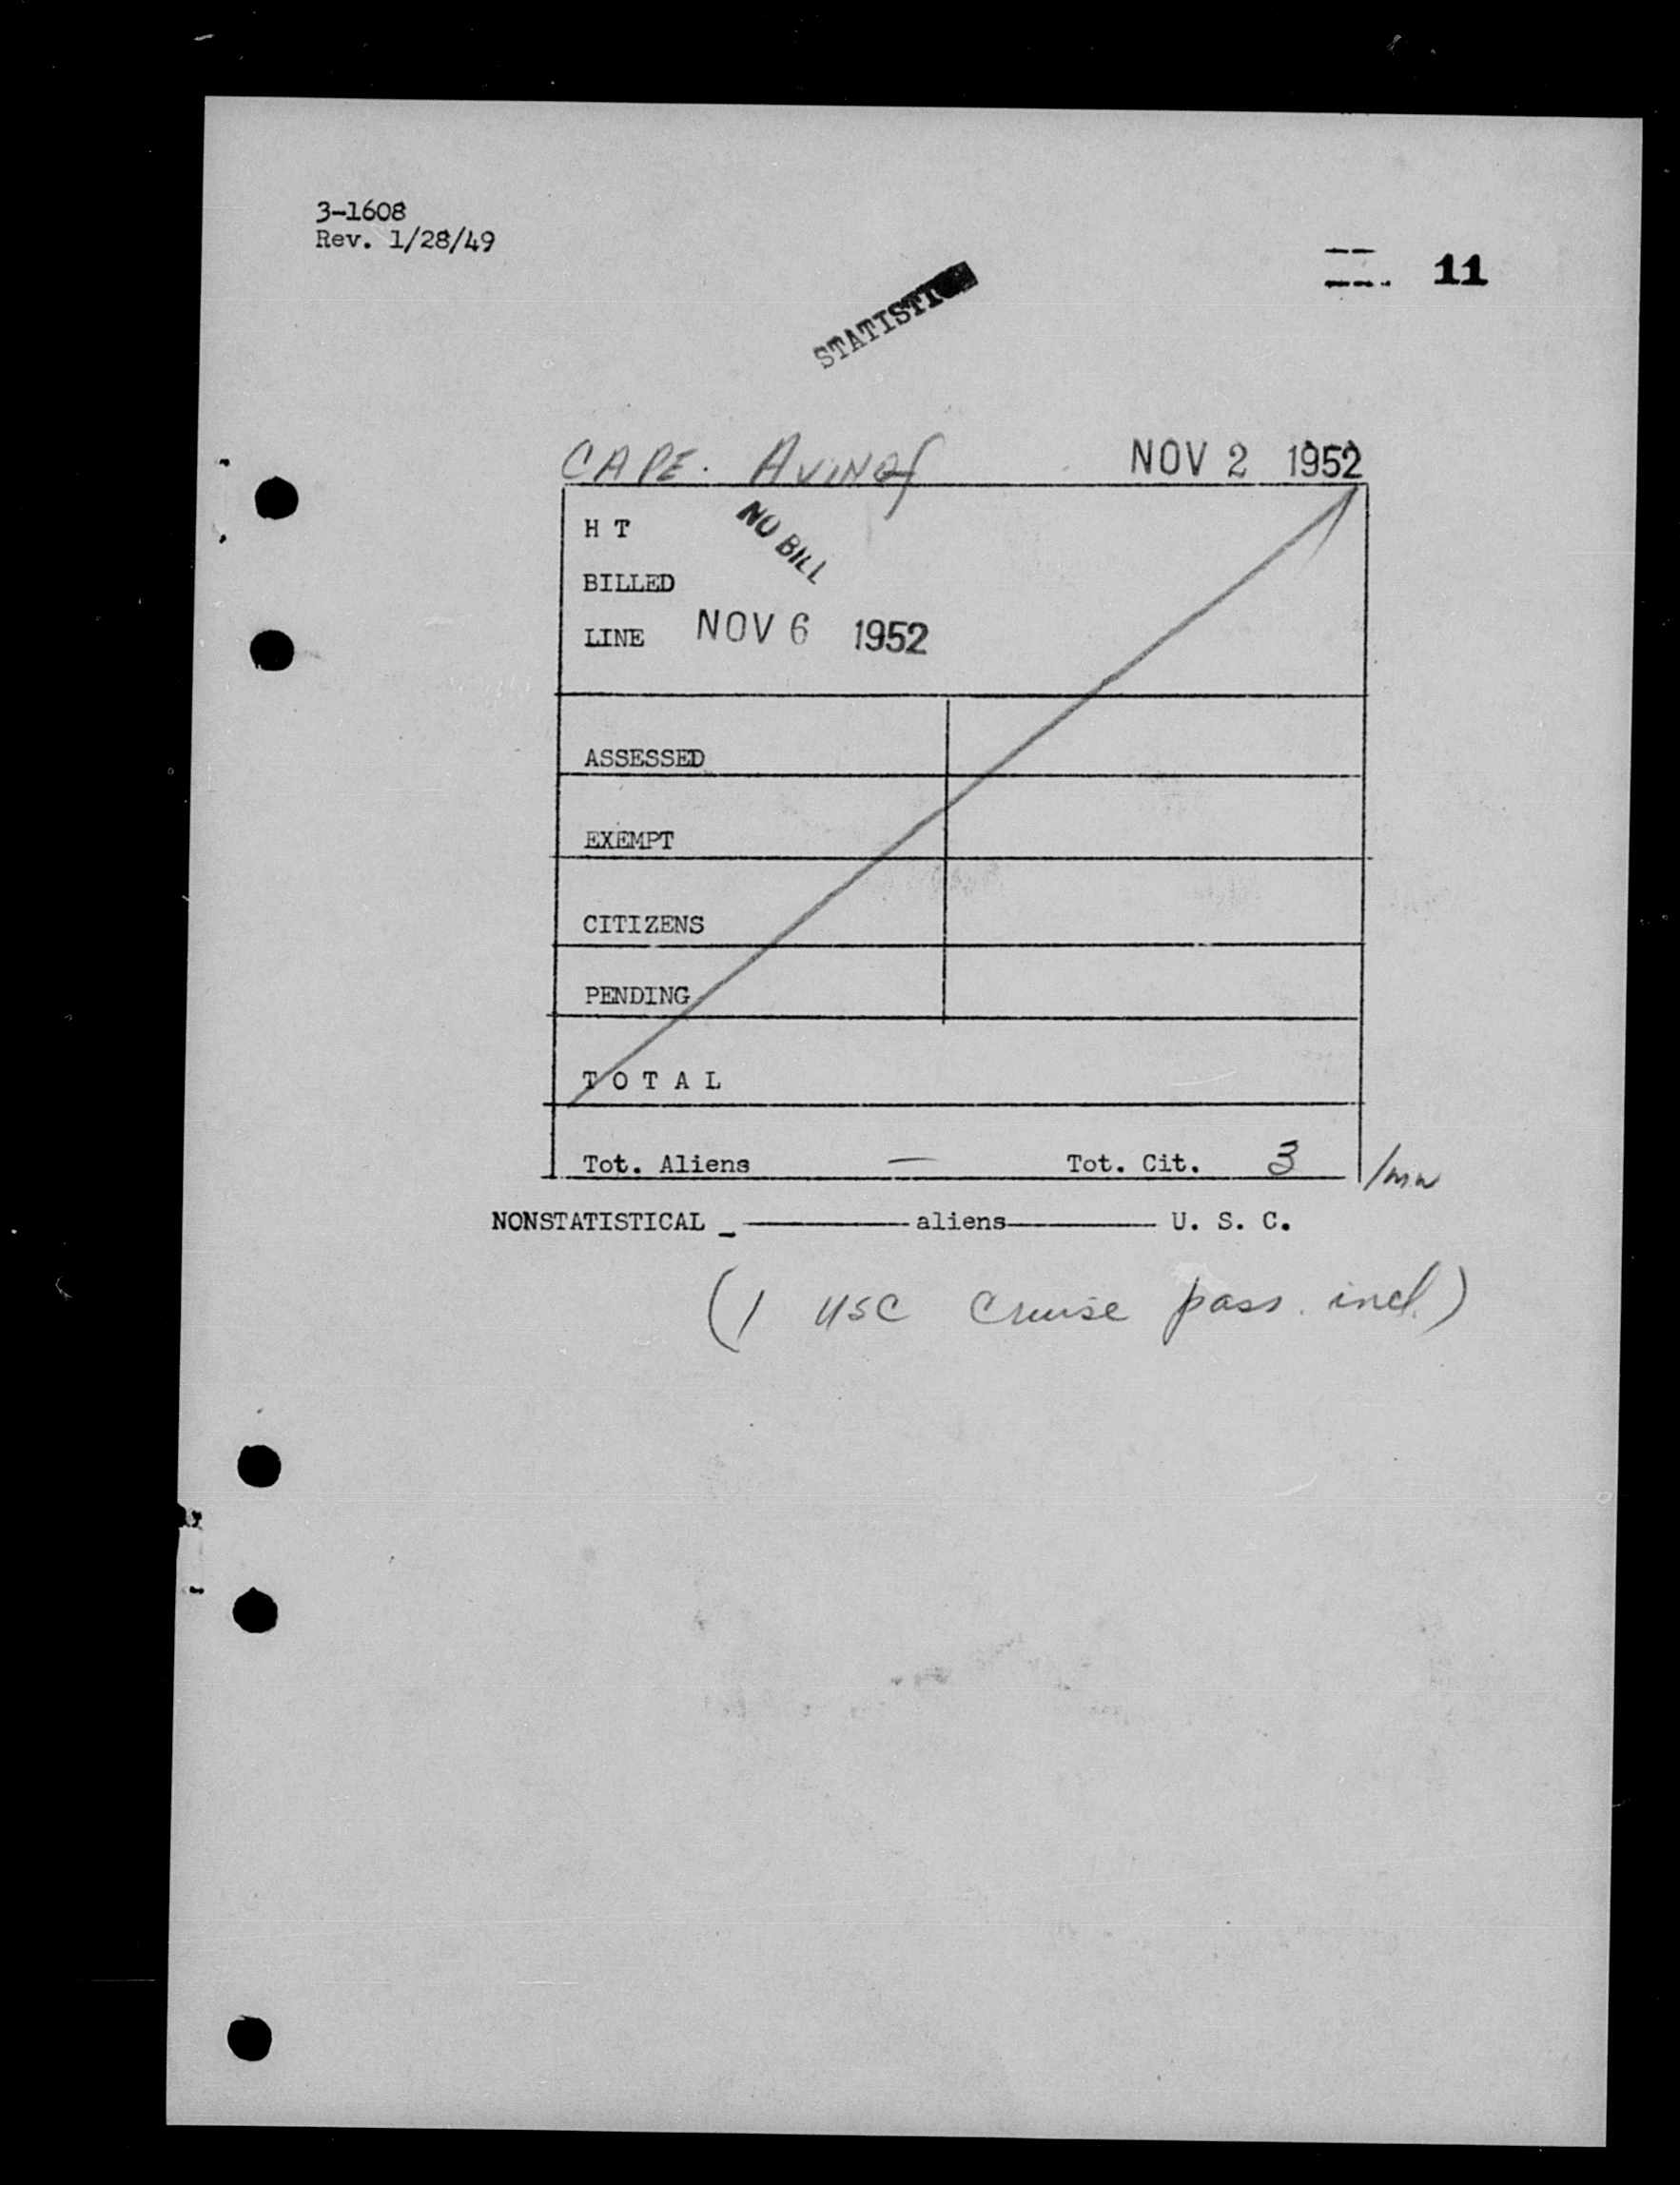 3-1608
Rev. 1/28/49
11
CAPE. AVINOF
NOV 2 1952
H T
NO BILL
BILLED
LINE NOV 6 1952
ASSESSED
EXEMPT
CITIZENS
PENDING
T O T A L
Tot. Aliens — Tot. Cit. 3
NONSTATISTICAL - aliens U. S. C.
(1 USC Cruise pass. incl.)